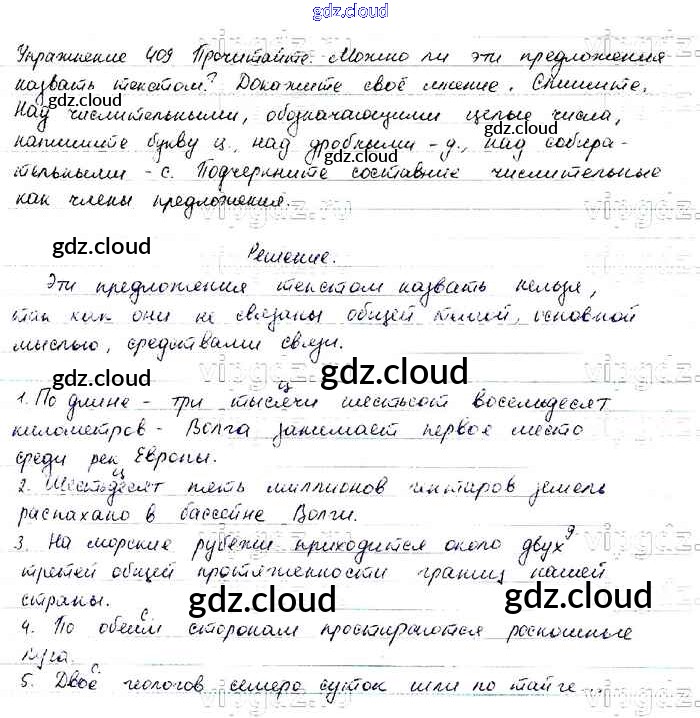 gdz.cloud
Упражнение 409 Прочитайте. Можно ли эти предложения
назвать текстом? Докажите своё мнение. Спишите.
gdz.cloud
Над числительными, обозначающими целые числа,
gdz.cloud
напишите букву ц., над дробными - д., над собира-
тельными - с. Подчеркните составные числительные
как члены предложения.
gdz.cloud
Решение.
Эти предложения текстом назвать нельзя,
так как они не связаны общей темой, основной
мыслью, средствами связи.
gdz.cloud
gdz.cloud
ц
1. По длине - три тысячи шестьсот восемьдесят
километров - Волга занимает первое место
среди рек Европы.
ц
2. Шестьдесят пять миллионов гектаров земель
распахано в бассейне Волги.
д
3. На морские рубежи приходится около двух
третей общей протяженности границ нашей
страны.
gdz.cloud
gdz.cloud
с
4. По обеим сторонам простираются роскошные
луга.
с
5. Двое геологов семеро суток шли по тайге
gdz.cloud